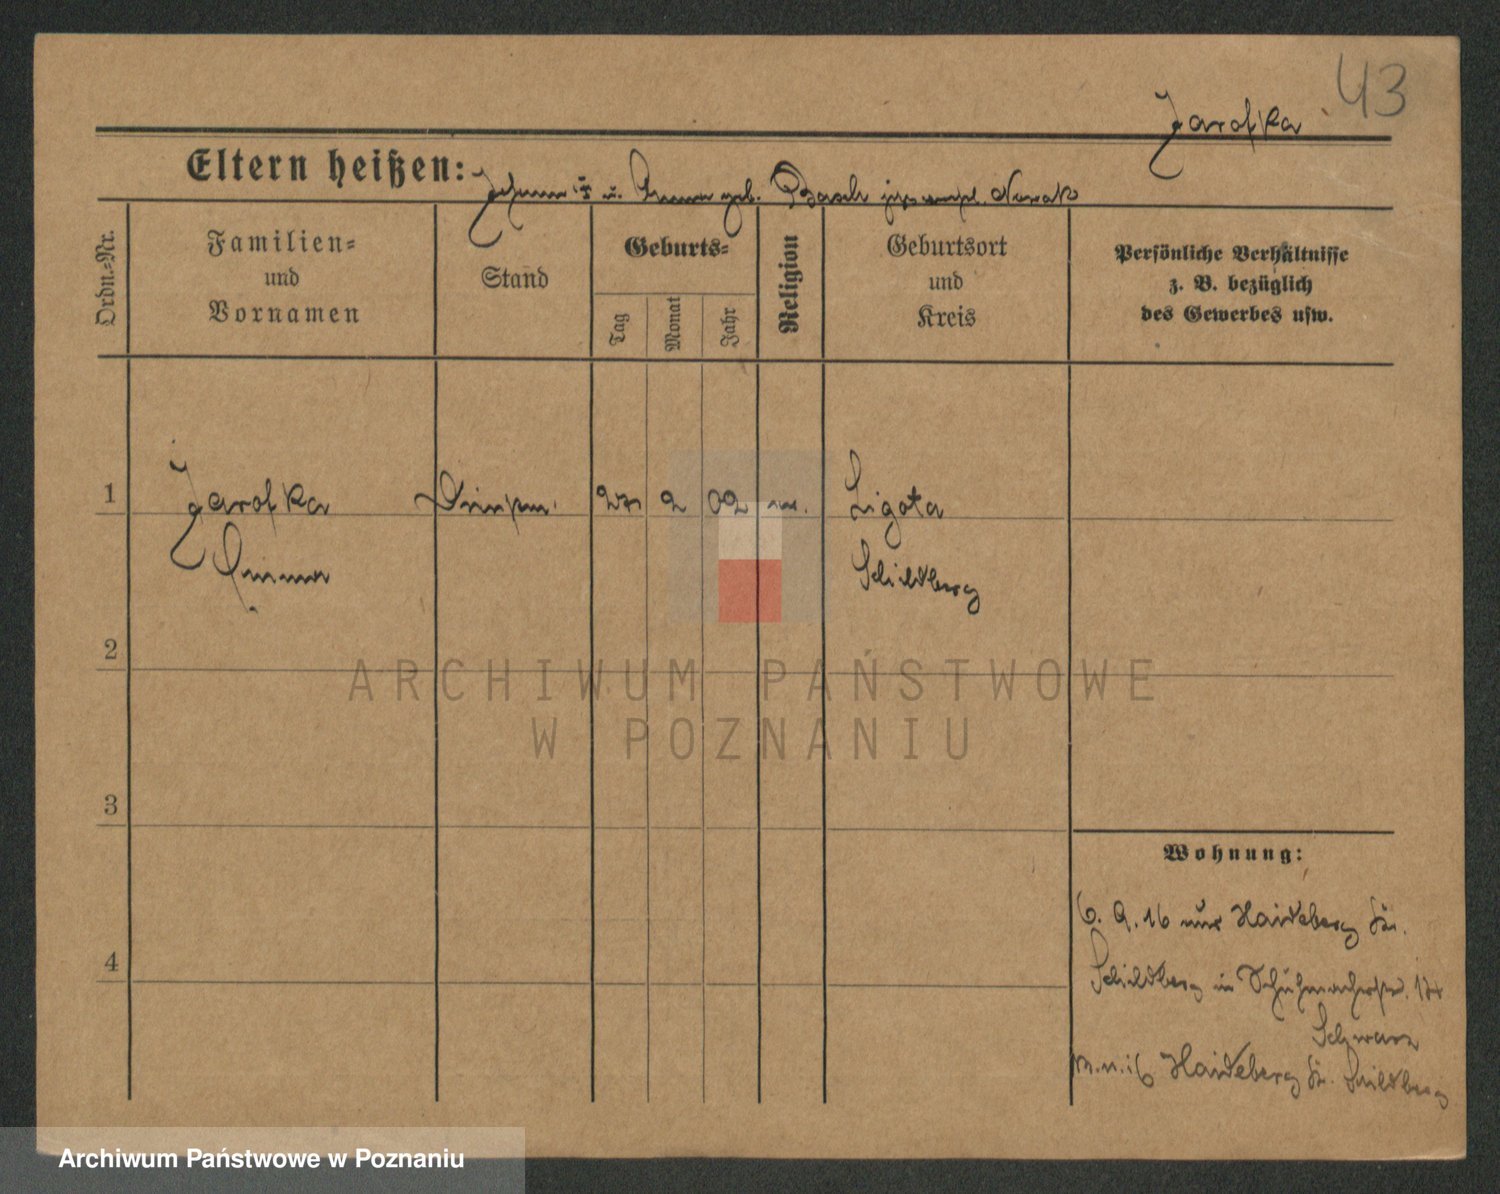 43
Jarofka
Eltern heißen: Johann † u. Anna geb. Basch jetz verehl. Nowak
Ordn.=Nr.
Familien=
und
Vornamen
Stand
Geburts=
Tag
Monat
Jahr
Religion
Geburtsort
und
Kreis
Persönliche Verhältnisse
z. B. bezüglich
des Gewerbes usw.
1 Jarofka 2 02 Ligota
Anna Schildberg
2
3
4
Wohnung:
6. 9. 16 aus Haideberg Kr.
Schildberg in Schuhmacherstr. 17
Schwarz
Haideberg Kr. Schildberg
ARCHIWUM PAŃSTWOWE
W POZNANIU
Archiwum Państwowe w Poznaniu